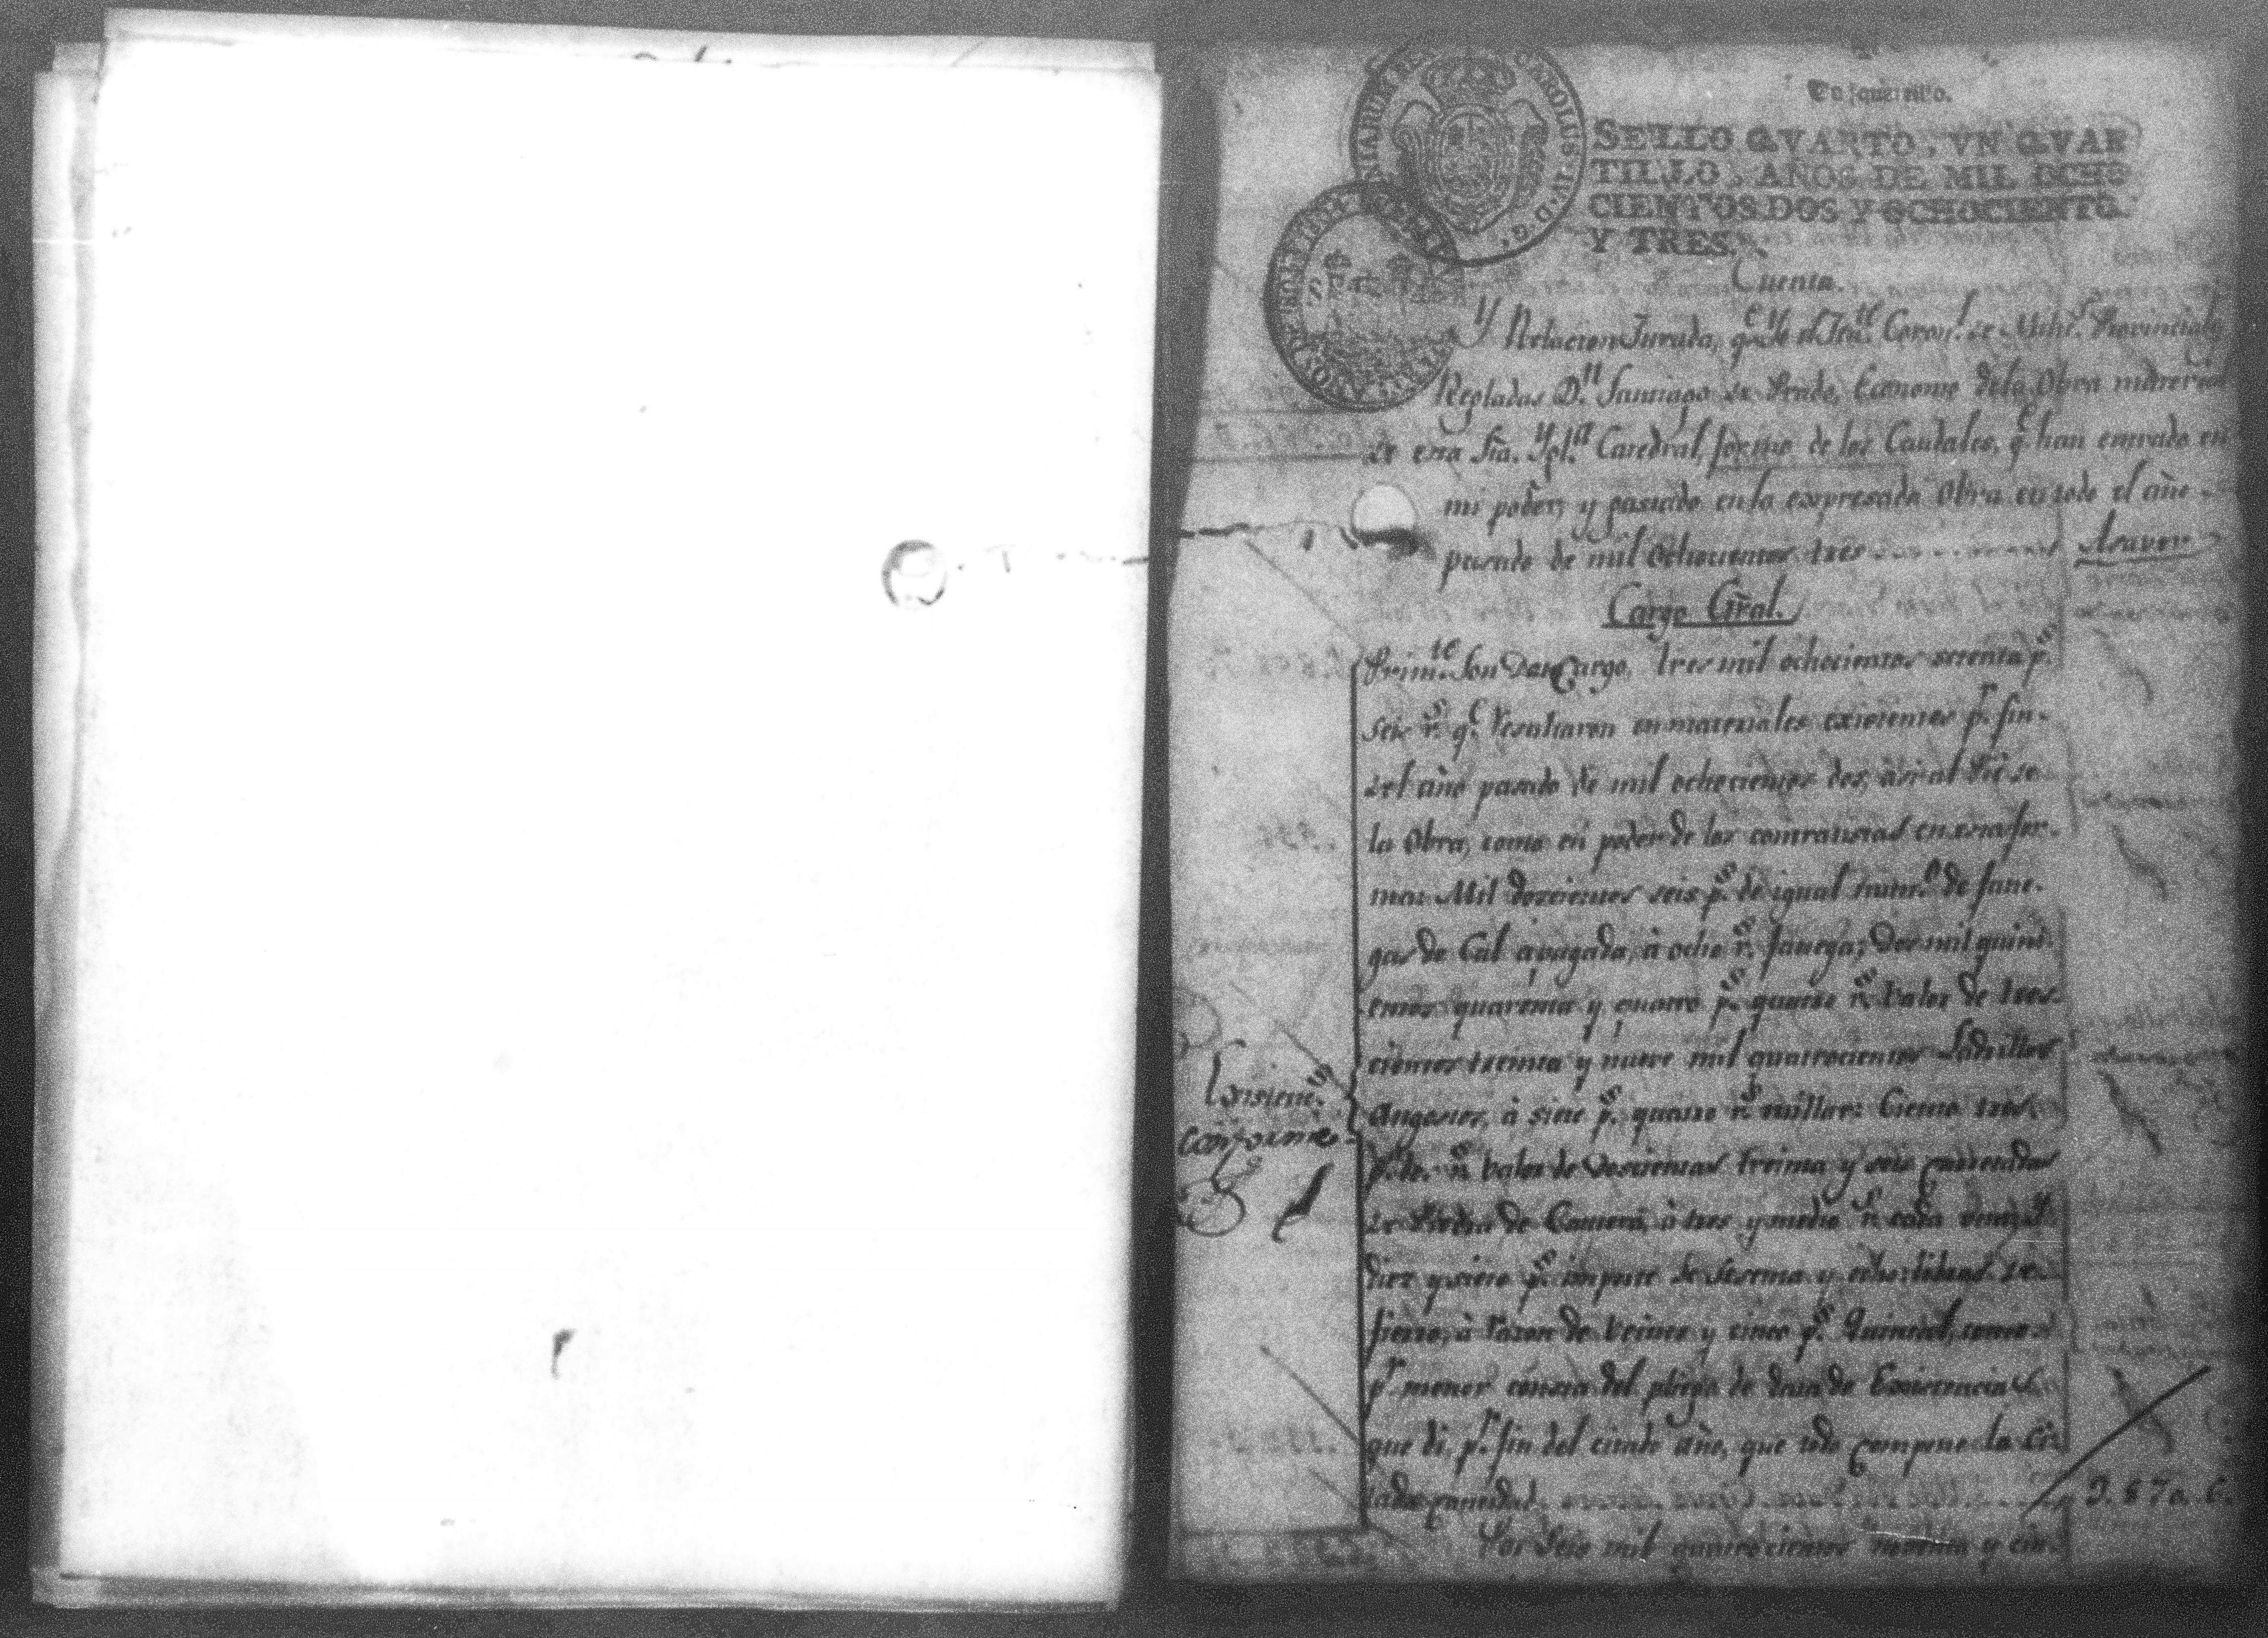 Un quartillo.
SELLO QVARTO, VN QVAR
TILLO, AÑOS DE MIL OCHO
CIENTOS DOS Y OCHOCIENTO.
Y TRES.
CAROLUS · IV · D · G ·
Cuenta.
Y Relacion Jurada, q.e Yo el Ten.te Coron.l de Mili.s Provinciales
Regladas D.n Santiago de Prado, Economo de la Obra material
de esta Sta. Ygl.a Catedral, formo de los Caudales, q.e han entrado en
mi poder, y gastado en la expresada Obra en todo el año
pasado de mil ochocientos tres Asaver
Cargo Gral.
Prim.te Son Cargo, tres mil ochocientos setenta p.s
seis r.s q.e resultaron en materiales existentes p.r fin
del año pasado de mil ochocientos dos, asi al Pie de
la Obra, como en poder de los contratistas en esta for-
ma: Mil doscientos seis p.s de igual num.o de fane-
gas de Cal apagada, à ocho r.s fanega; Dos mil quini-
entos quarenta y quatro p.s quatro r.s valor de tres-
cientos treinta y nueve mil quatrocientos Ladrillos
angostos, à siete p.s quatro r.s millar: Ciento tres
p.s dos r.s valor de Doscientas treinta y seis carretadas
de Piedra de Cantera, à tres y medio r.s cada una; y
diez y siete p.s importe de sesenta y ocho libras de
fierro, à razon de veinte y cinco p.s Quintal, como
p.r menor consta del pliego de data de Existencias
que di, p.r fin del citado año, que todo compone la ci-
tada cantidad 3.870. 6.
Por Seis mil quatrocientos noventa y cin-
Existenc.s
conforme